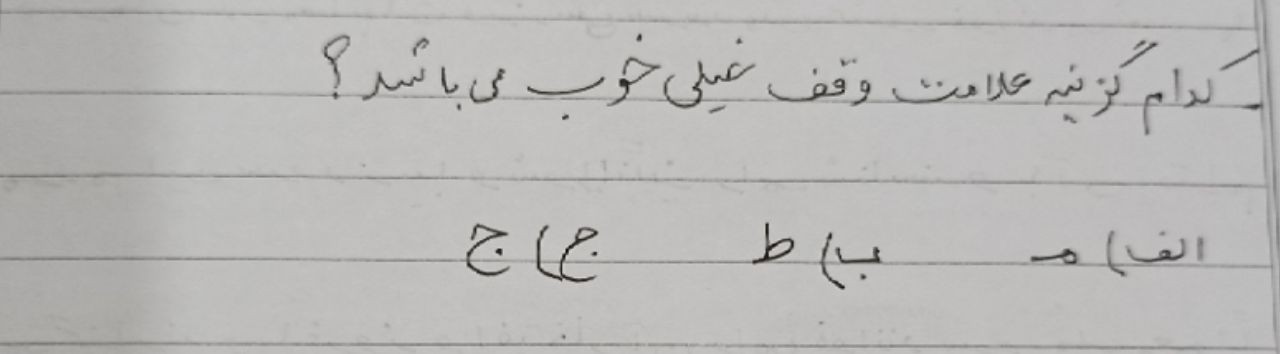 کدام گزینه علامت وقف خیلی خوب می باشد؟
الف) مـ ب) ط ج) ج